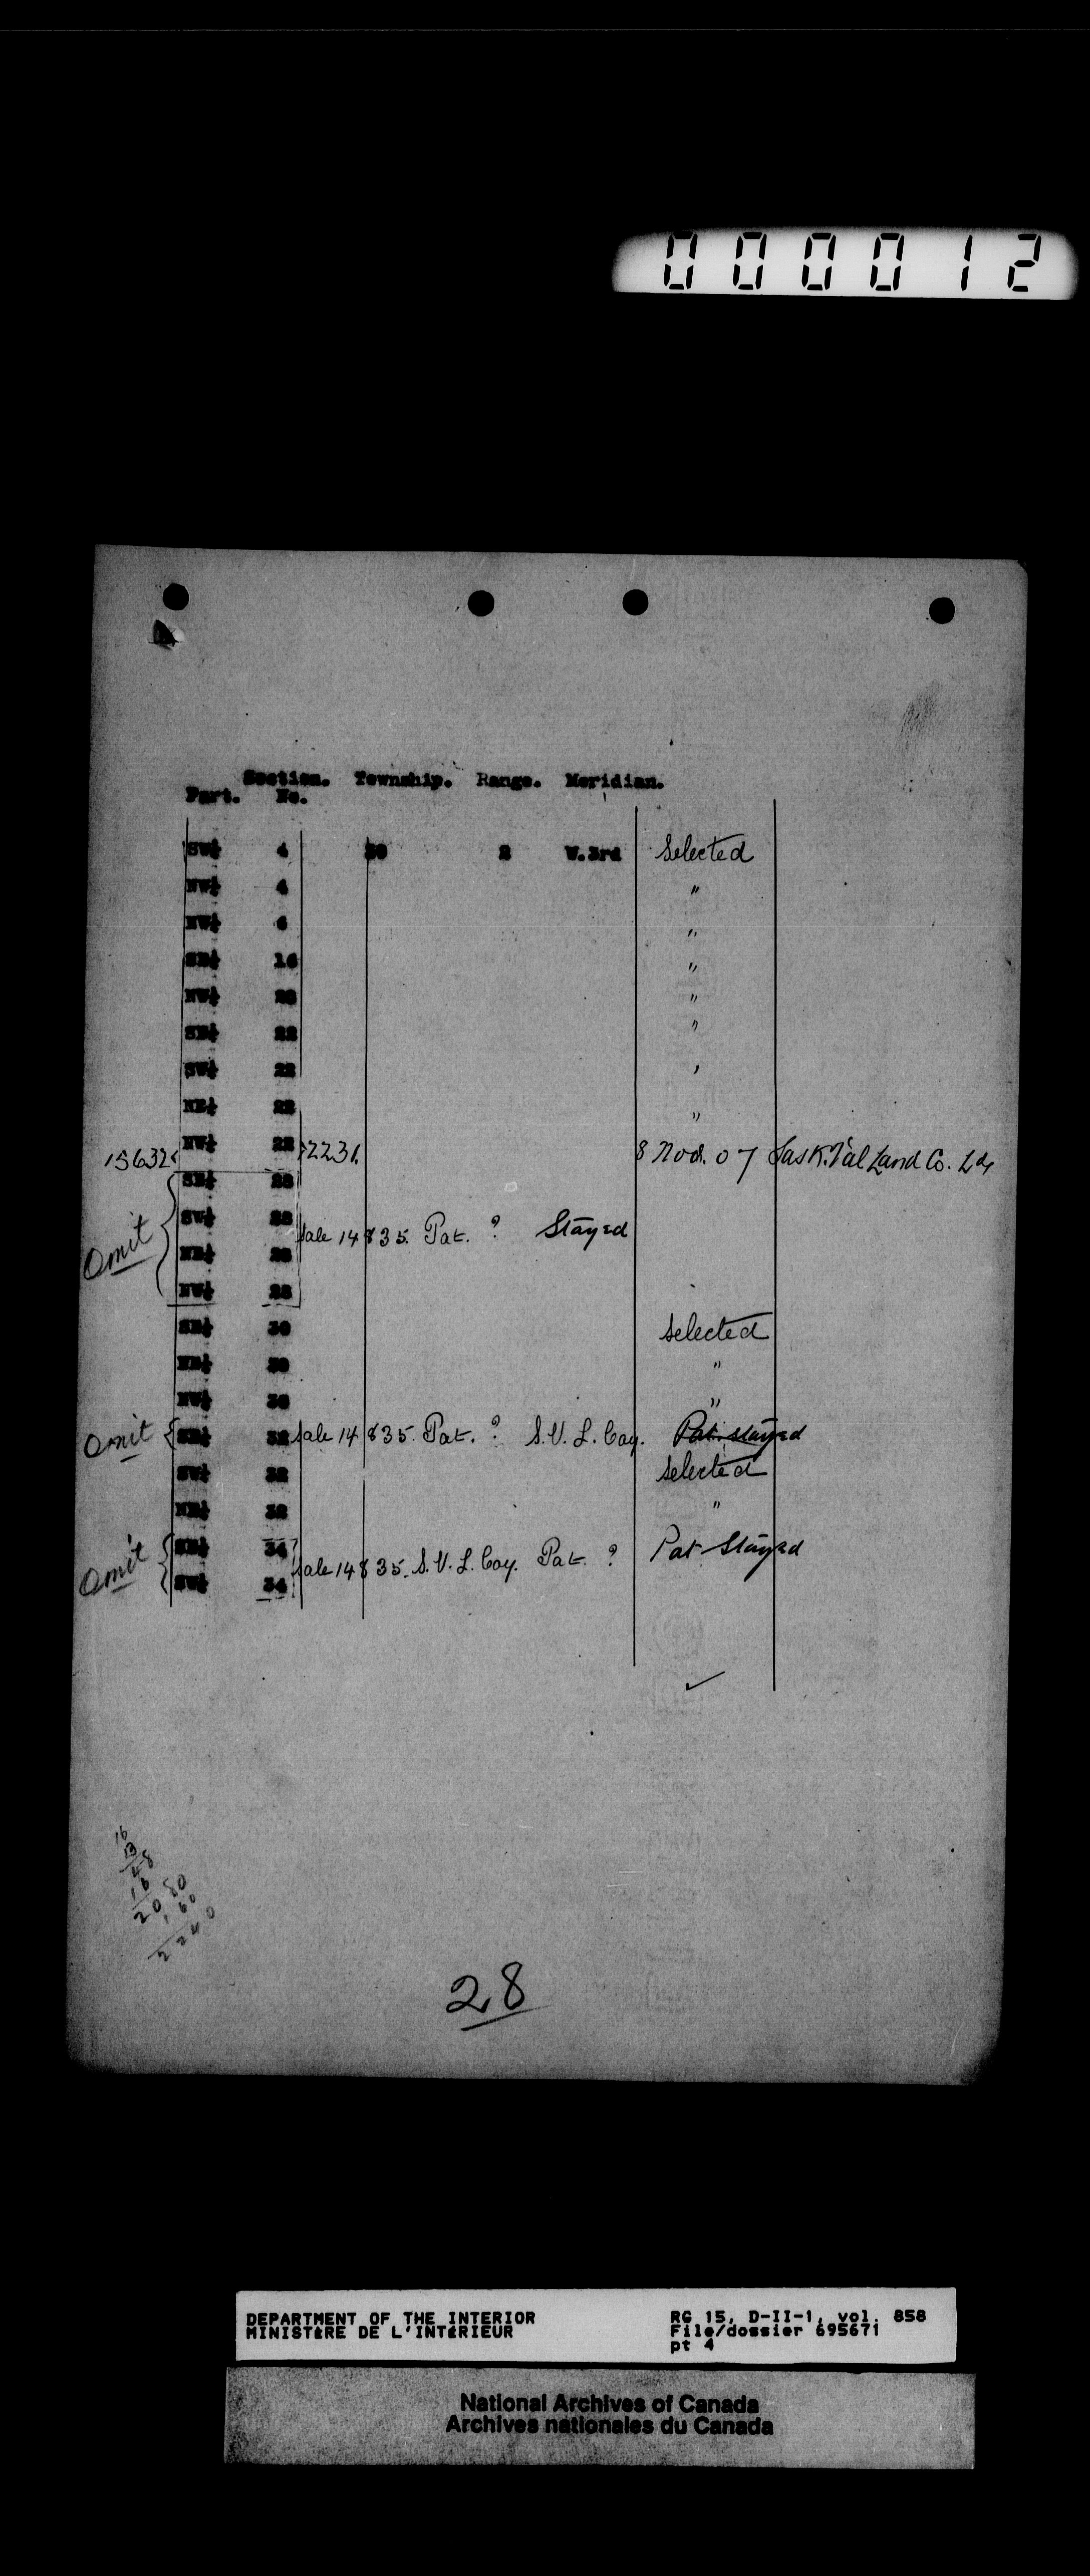 000012
Section. Township. Range. Meridian.
Part. No.
SW¼ 4 30 2 W.3rd Selected
NW¼ 4 "
NW¼ 6 "
SE¼ 16 "
NW¼ 20 "
SE¼ 22 "
SW¼ 22 "
NE¼ 22 "
NW¼ 22 8 Nov. 07 Sask. Val Land Co. Ld
SE¼ 28
Omit SW¼ 28 Sale 14835. Pat. ? Stayed
NE¼ 28
NW¼ 28
SE¼ 30 selected
NE¼ 30 "
NW¼ 30 "
Omit SE¼ 32 Sale 14835. Pat. ? S.V.L. Coy. Pat. stayed
SW¼ 32 selected
NE¼ 32 "
Omit SE¼ 34 Sale 14835. S.V.L. Coy. Pat. ? Pat Stayed
SW¼ 34
16
13
48
16
2080
160
2240
28
DEPARTMENT OF THE INTERIOR RG 15, D-II-1, vol. 858
MINISTÈRE DE L'INTÉRIEUR File/dossier 695671
pt 4
National Archives of Canada
Archives nationales du Canada